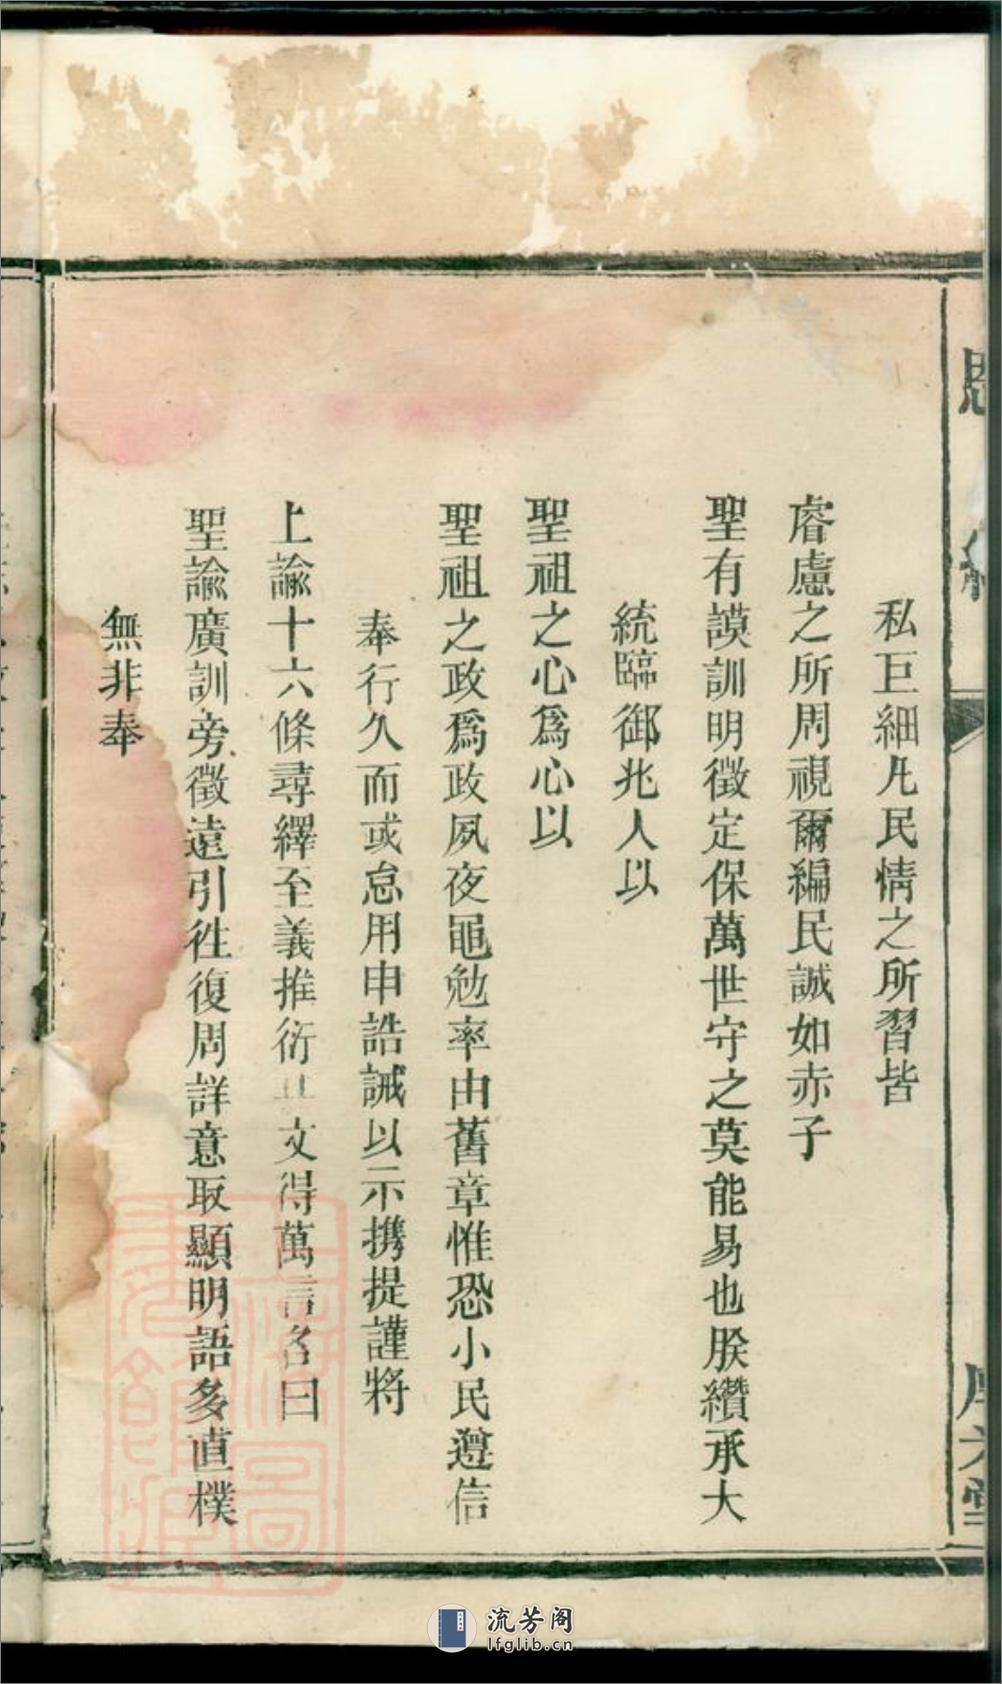 私巨細凢民情之所習皆
睿慮之所周視爾編民誠如赤子
聖有謨訓明徵定保萬世守之莫能易也朕纘承大
統臨御兆人以
聖祖之心爲心以
聖祖之政爲政夙夜黽勉率由舊章惟恐小民遵信
奉行久而或怠用申誥誡以示携提謹將
上諭十六條尋繹至義推衍其文得萬言名曰
聖諭廣訓旁徵遠引徃復周詳意取顯明語多直樸
無非奉
上海圖
書館藏
流芳阁
lfglib.cn